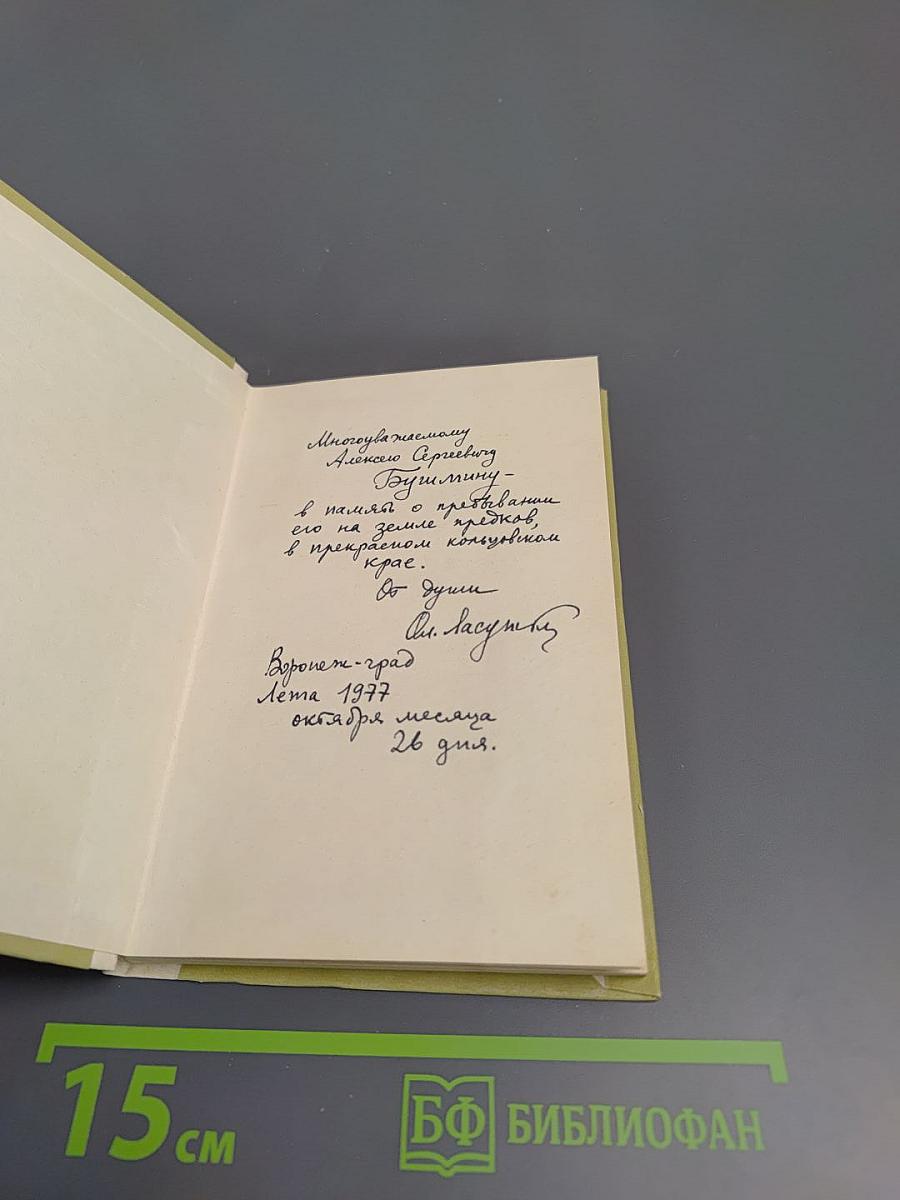 Многоуважаемому
Алексею Сергеевичу
Бушмину –
в память о пребывании
его на земле предков,
в прекрасном кольцовском
крае.
От души
Ол. Ласунский
Воронеж-град
Лета 1977
октября месяца
26 дня.
15 см
БФ БИБЛИОФАН